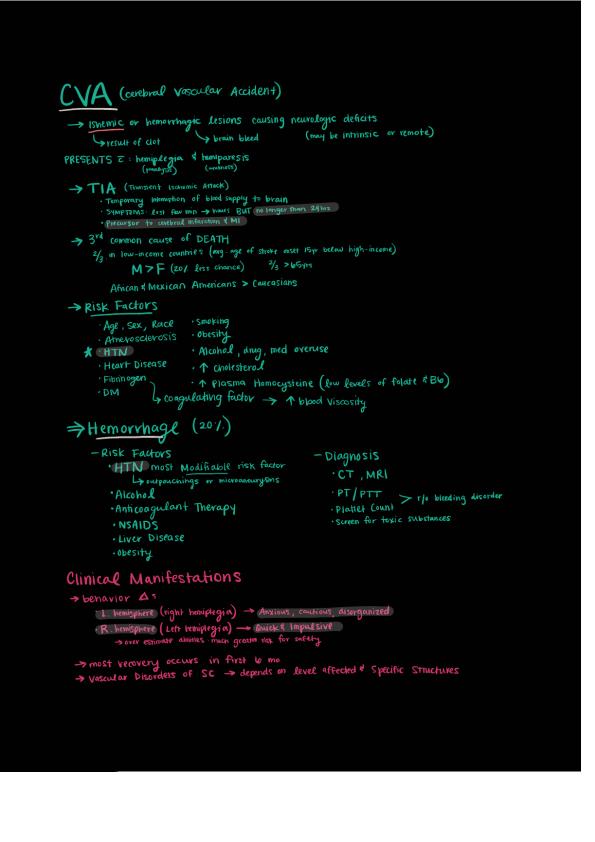 CVA (cerebral Vascular Accident)
→ Ishemic or hemorrhagic lesions causing neurologic deficits
↳ result of clot ↳ brain bleed (may be intrinsic or remote)
PRESENTS c̄: hemiplegia & hemiparesis
(paralysis) (weakness)
→ TIA (Transient Ischemic Attack)
• Temporary interruption of blood supply to brain
• Symptoms: last few min → hours BUT no longer than 24hrs
• Precursor to cerebral infarction & MI
→ 3rd common cause of DEATH
2/3 in low-income countries (avg. age of stroke onset 15yr below high-income)
M > F (20% less chance) 2/3 > 65yrs
African & Mexican Americans > Caucasians
→ Risk Factors
• Age, Sex, Race • Smoking
• Atherosclerosis • Obesity
* • HTN • Alcohol, drug, med overuse
• Heart Disease • ↑ Cholesterol
• Fibrinogen • ↑ Plasma Homocysteine (low levels of folate & B6)
• DM ↳ coagulating factor → ↑ blood viscosity
⇒ Hemorrhage (20%)
– Risk Factors – Diagnosis
• HTN most Modifiable risk factor • CT, MRI
↳ outpouchings or microaneurysms
• Alcohol • PT/PTT > r/o bleeding disorder
• Anticoagulant Therapy • Platlet Count
• NSAIDS • Screen for toxic substances
• Liver Disease
• Obesity
Clinical Manifestations
→ behavior Δs:
• L. hemisphere (right hemiplegia) → Anxious, cautious, disorganized
• R. hemisphere (Left hemiplegia) → Quick & Impulsive
→ over estimate abilities much greater risk for safety
→ most recovery occurs in first 6 mo
→ Vascular Disorders of SC → depends on level affected & Specific Structures